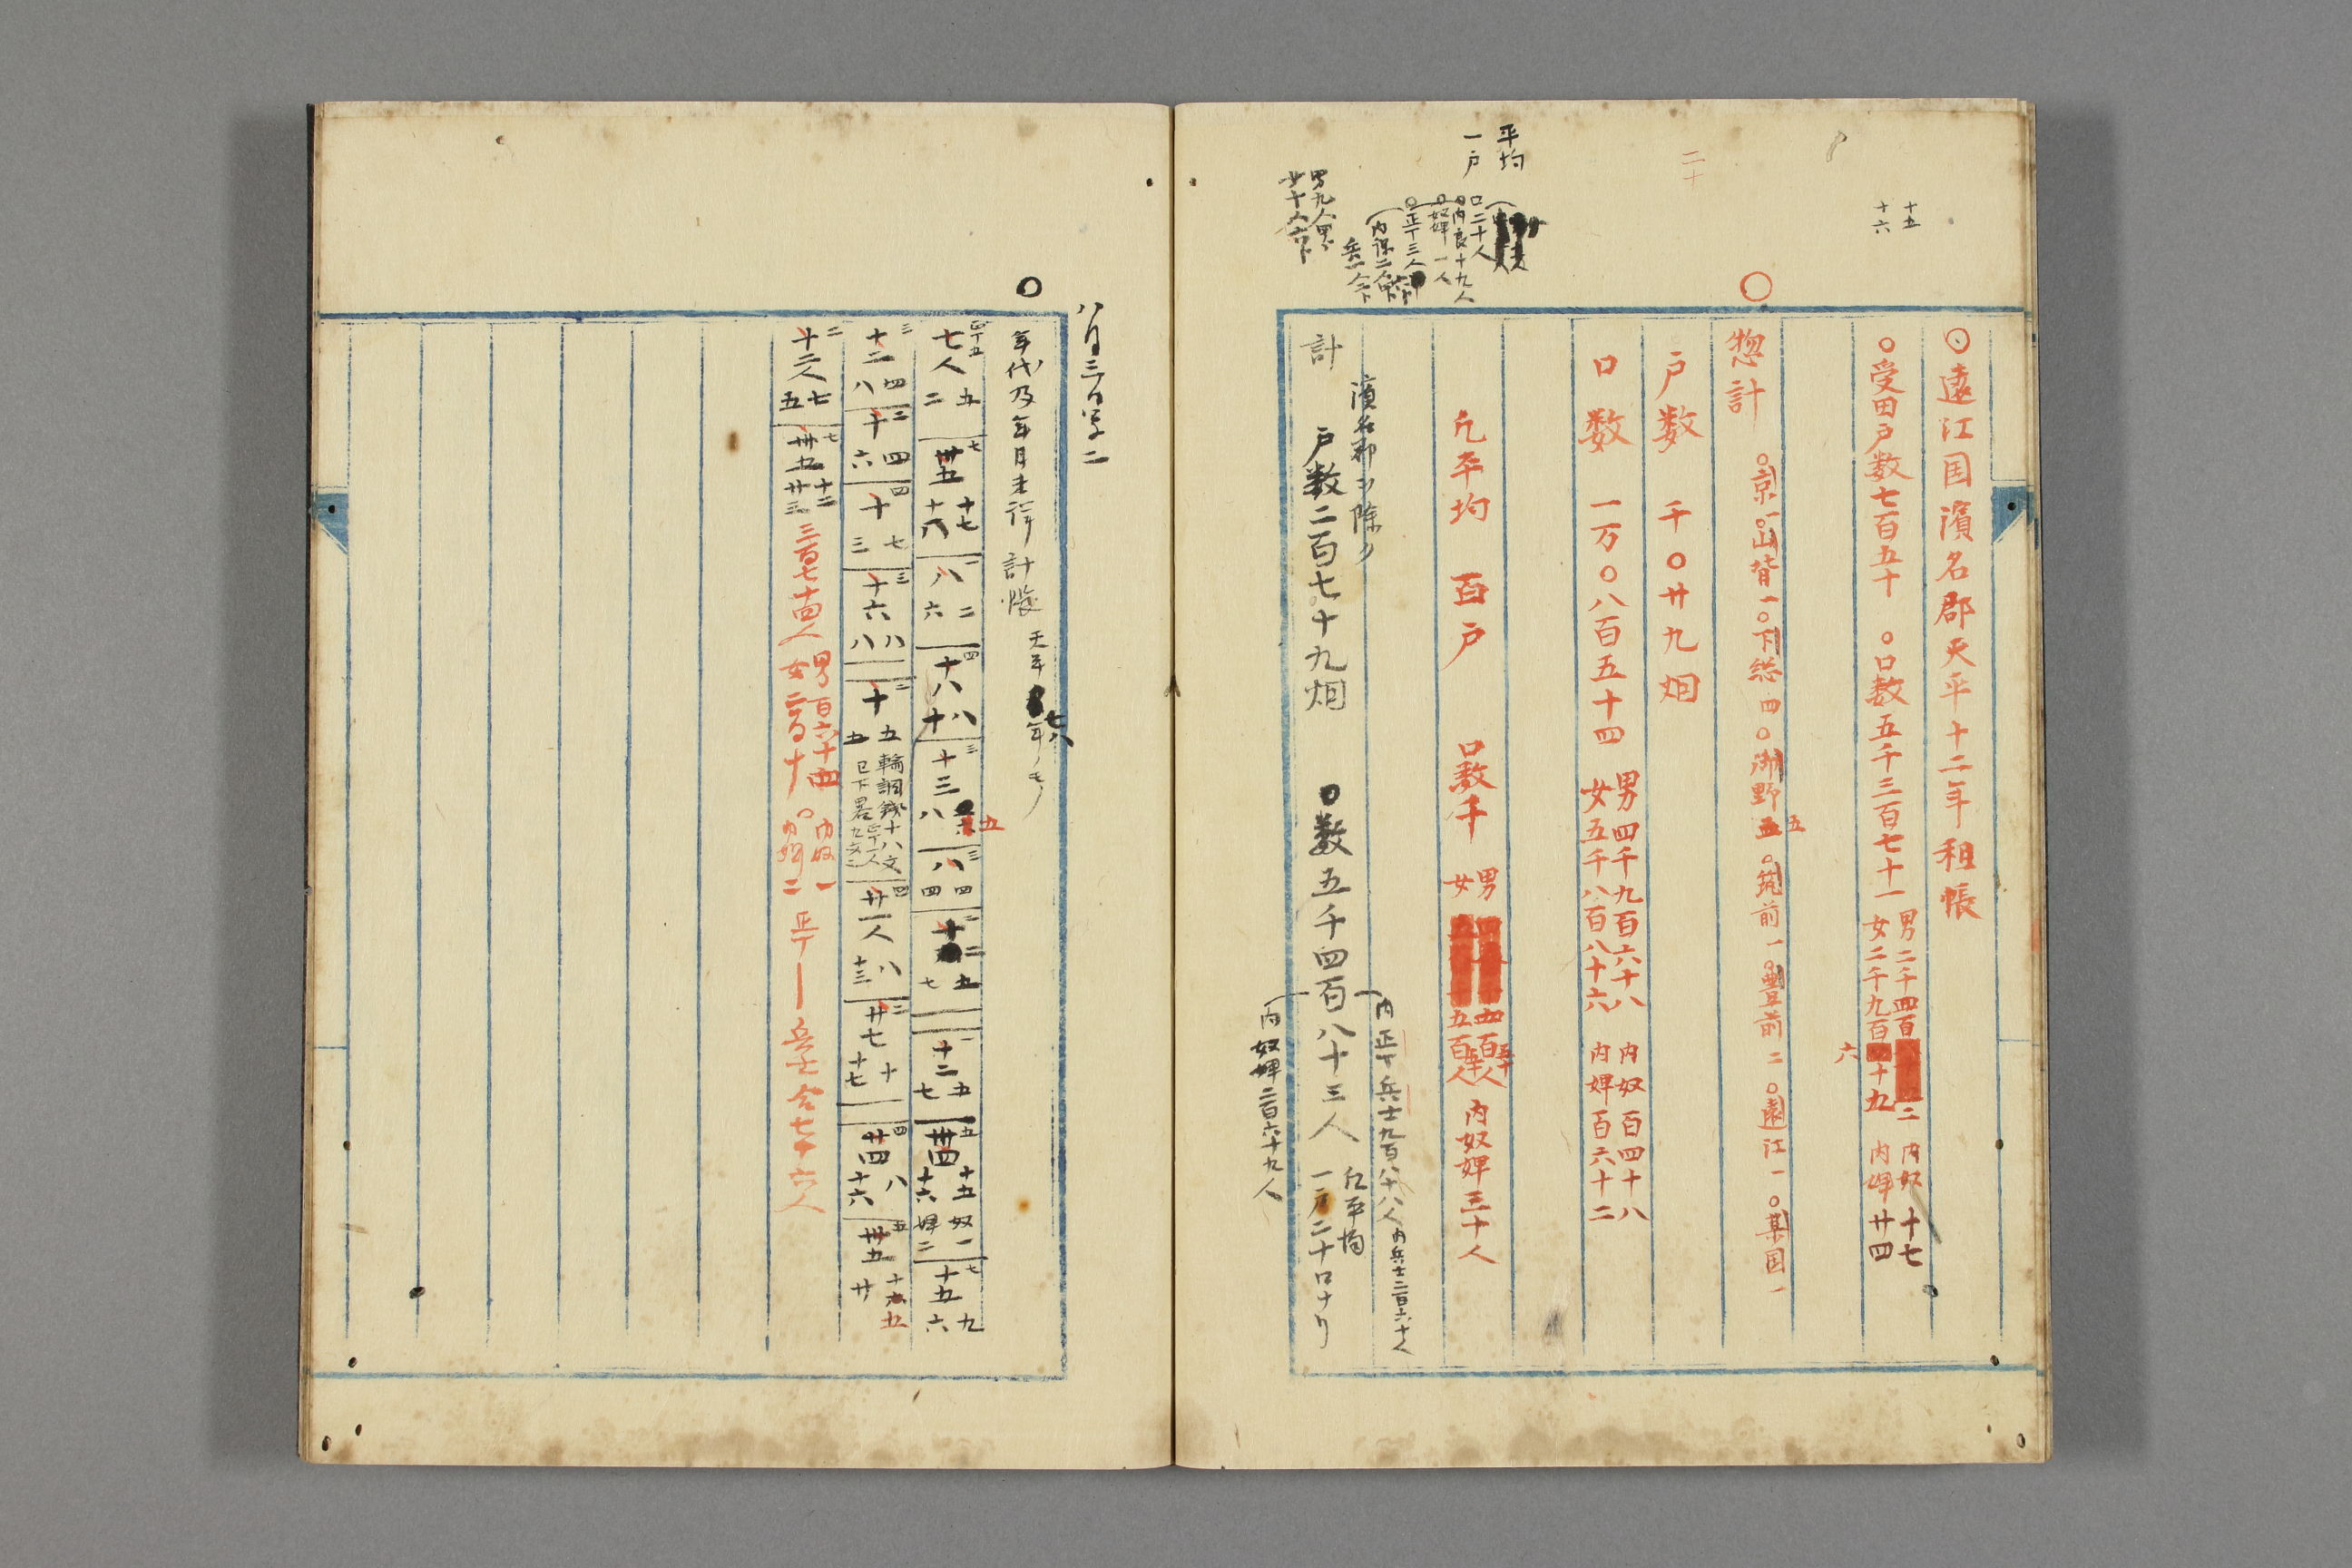 十五
十六
二十
〇遠江国濱名郡天平十二年租帳
〇受田戸数七百五十 〇口数五千三百七十一 男二千四百二 内奴十七
女二千九百六十九 内婢廿四
惣計
〇京一〇山背一〇下総四〇御野五〇筑前一〇豊前二〇遠江一〇某国一
戸数 千〇廿九烟
口数 一万〇八百五十四 男四千九百六十八 内奴百四十八
女五千八百八十六 内婢百六十二
凡平均 百戸 口数千 男四百五十人
女五百五十人 内奴婢三十人
平均
一戸
口二十人
内良十九人
奴婢一人
〇正丁三人
濱名郡ヲ除ク
計 戸数二百七十九烟 〇口数五千四百八十三人 凡平均
一戸二十口ナリ
内正丁兵士九百八十八人内兵士二百六十人
内奴婢二百六十九人
八月三日写二
〇
年代及年月未詳 計帳 天平七八年ノモノ
正丁五 七人 五 二
七 卅五 十七 十八
一 八 二 六
四 十八 八 十
三 十三 五 八
三 八 四 四
二 十二 五 七
十二 五 七
五 卅四 十五 十六 奴一 婢二
七 十五 九 六
三 十二 四 八
二 十 四 六
四 十 七 三
三 十六 八 八
二 十 五 五 輪調銭十八文
四 廿一人 八 十三
二 廿七 十 十七
四 廿四 八 十六
五 卅五 十五 廿
二 十二人 七 五
七 卅五 十二 廿三
三百七十四人 男百六十四 女二百十 〇内奴一 内婢二 正丁一兵士合七十六人